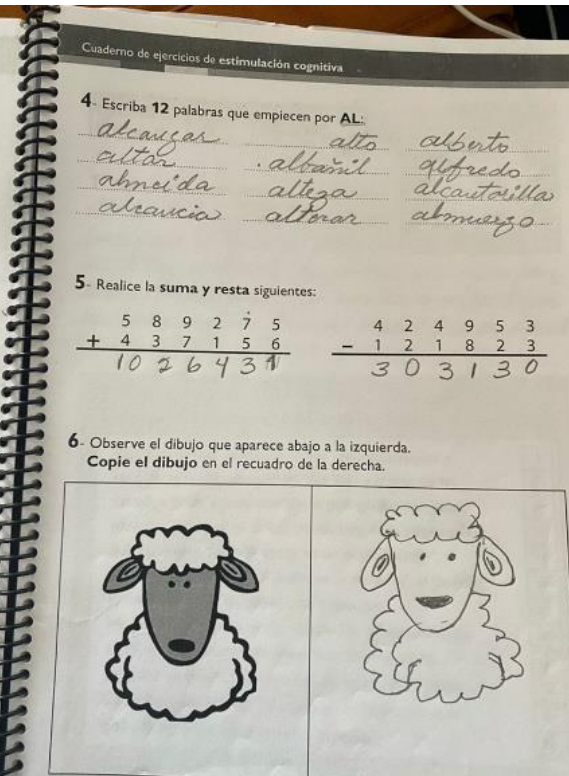 Cuaderno de ejercicios de estimulación cognitiva
4- Escriba 12 palabras que empiecen por AL:
alcanzar alto alberto
altar albañil alfredo
almeida alteza alcantarilla
alcancia alterar almuerzo
5- Realice la suma y resta siguientes:
5 8 9 2 7 5 4 2 4 9 5 3
+ 4 3 7 1 5 6 - 1 2 1 8 2 3
10 2 6 4 3 1 3 0 3 1 3 0
6- Observe el dibujo que aparece abajo a la izquierda.
Copie el dibujo en el recuadro de la derecha.